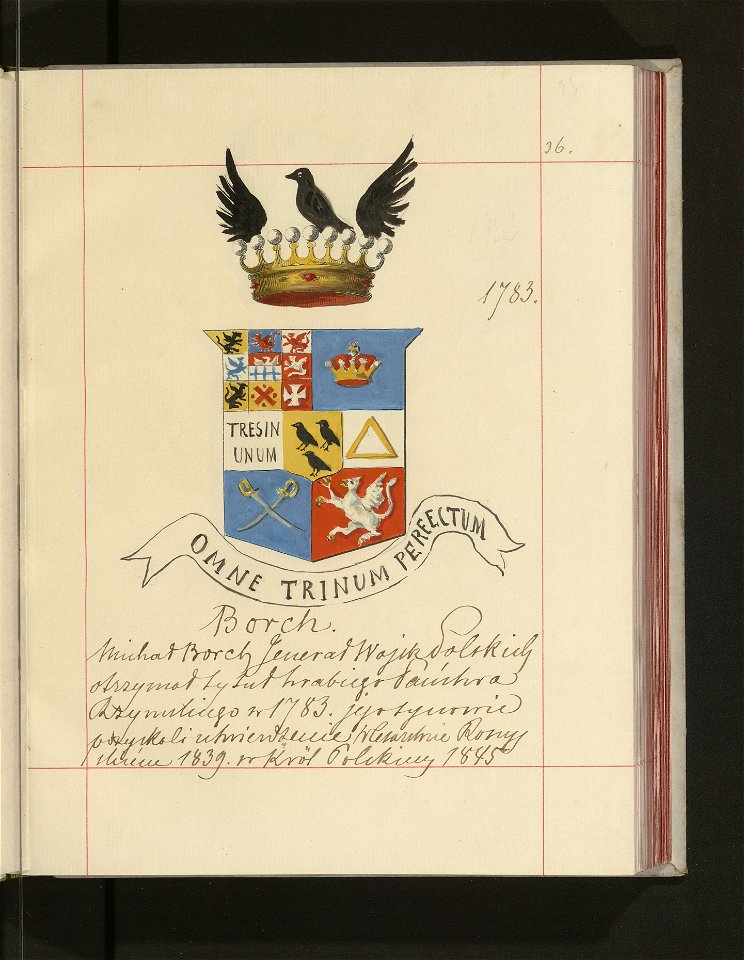 36.
1783.
TRES IN
UNUM
OMNE TRINUM PERFECTUM
Borch.
Michał Borch Jenerał Wojsk Polskich
otrzymał tytuł hrabiego Państwa
Rzymskiego w 1783. jego synowie
uzyskali utwierdzenie w Cesarstwie Rossyj
skiém 1839. w Król Polskiém 1845